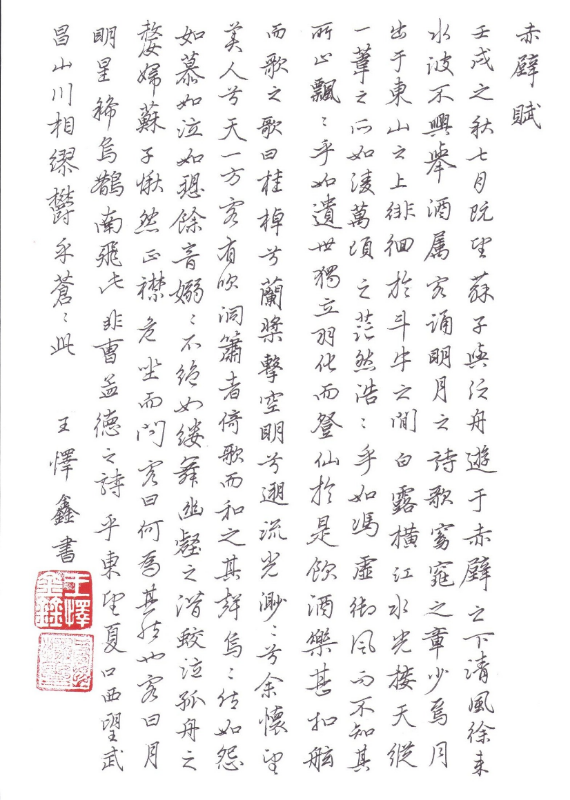 赤壁賦
壬戌之秋七月既望蘇子與泛舟遊于赤壁之下清風徐来
水波不興舉酒属客誦明月之詩歌窈窕之章少焉月
出于東山之上徘徊於斗牛之間白露橫江水光接天縱
一葦之所如淩萬頃之茫然浩〻乎如馮虛御風而不知其
所止飄〻乎如遺世獨立羽化而登仙於是飲酒樂甚扣舷
而歌之歌曰桂棹兮蘭槳擊空明兮遡流光渺〻兮余懷望
美人兮天一方客有吹洞簫者倚歌而和之其聲烏〻然如怨
如慕如泣如愬餘音嫋〻不絶如縷舞幽壑之潛蛟泣孤舟之
嫠婦蘇子愀然正襟危坐而問客曰何為其然也客曰月
明星稀烏鵲南飛此非曹孟德之詩乎東望夏口西望武
昌山川相繆鬱乎蒼〻此
王懌鑫書
王懌鑫